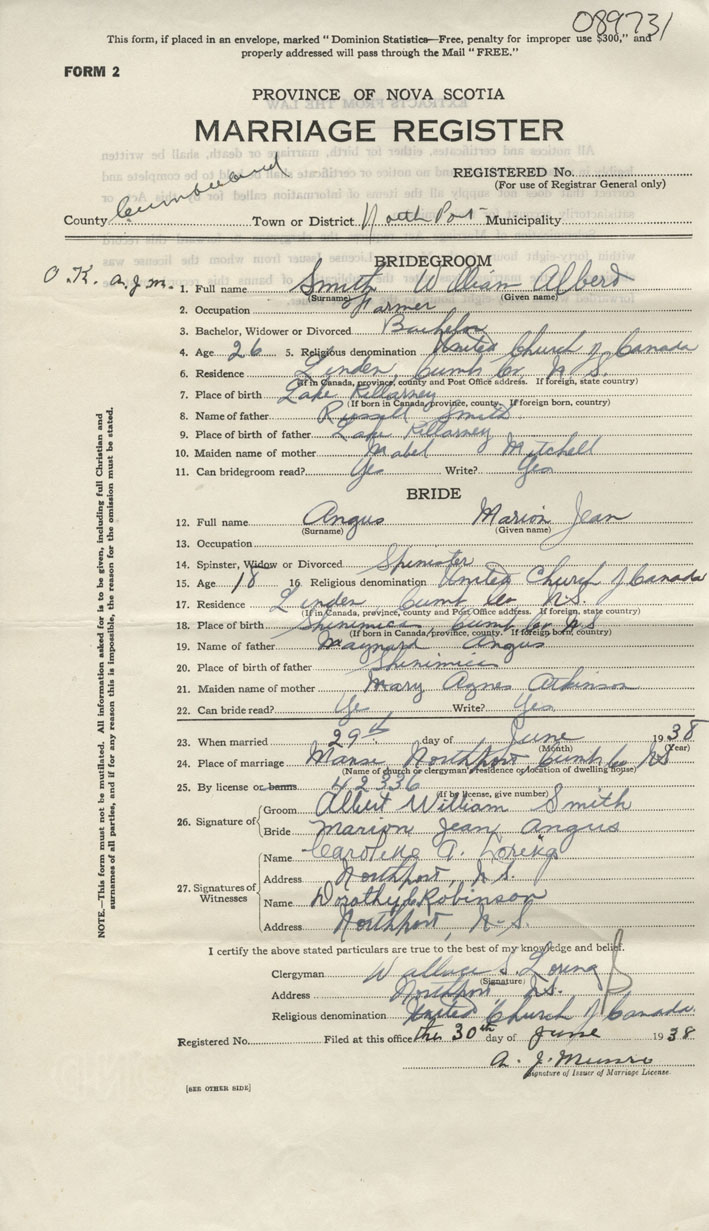 089731
This form, if placed in an envelope, marked "Dominion Statistics—Free, penalty for improper use $300," and
properly addressed will pass through the Mail "FREE."
FORM 2
PROVINCE OF NOVA SCOTIA
MARRIAGE REGISTER
REGISTERED No.
(For use of Registrar General only)
County Cumberland Town or District North Port Municipality
BRIDEGROOM
O.K. A.J.M. 1. Full name Smith William Albert
(Surname) (Given name)
2. Occupation Farmer
3. Bachelor, Widower or Divorced Bachelor
4. Age 26 5. Religious denomination United Church of Canada
6. Residence Linden, Cumb Co. N.S.
(If in Canada, province, county and Post Office address. If foreign, state country)
7. Place of birth Lake Killarney
(If born in Canada, province, county. If foreign born, country)
8. Name of father Russell Smith
9. Place of birth of father Lake Killarney
10. Maiden name of mother Mabel Mitchell
11. Can bridegroom read? Yes Write? Yes
BRIDE
12. Full name Angus Marion Jean
(Surname) (Given name)
13. Occupation
14. Spinster, Widow or Divorced Spinster
15. Age 18 16. Religious denomination United Church of Canada
17. Residence Linden Cumb Co N.S.
(If in Canada, province, county and Post Office address. If foreign, state country)
18. Place of birth Shinimicas, Cumb Co. N.S
(If born in Canada, province, county. If foreign born, country)
19. Name of father Maynard Angus
20. Place of birth of father Shinimicas
21. Maiden name of mother Mary Agnes Atkinson
22. Can bride read? Yes Write? Yes
23. When married 29th day of June 1938
(Month) (Year)
24. Place of marriage Manse, Northport Cumb Co NS
(Name of church or clergyman's residence or location of dwelling house)
25. By license or banns 42336
(If by license, give number)
26. Signature of Groom Albert William Smith
Bride Marion Jean Angus
27. Signatures of Witnesses
Name Caroline A. Loring
Address Northport, N.S.
Name Dorothy Robinson
Address Northport, N-S.
I certify the above stated particulars are true to the best of my knowledge and belief.
Clergyman Wallace S. Loring
(Signature)
Address Northport N.S.
Religious denomination United Church of Canada.
Registered No. Filed at this office the 30th day of June 1938
A. J. Munro
Signature of Issuer of Marriage License
[SEE OTHER SIDE]
NOTE.—This form must not be mutilated. All information asked for is to be given, including full Christian and
surnames of all parties, and if for any reason this is impossible, the reason for the omission must be stated.